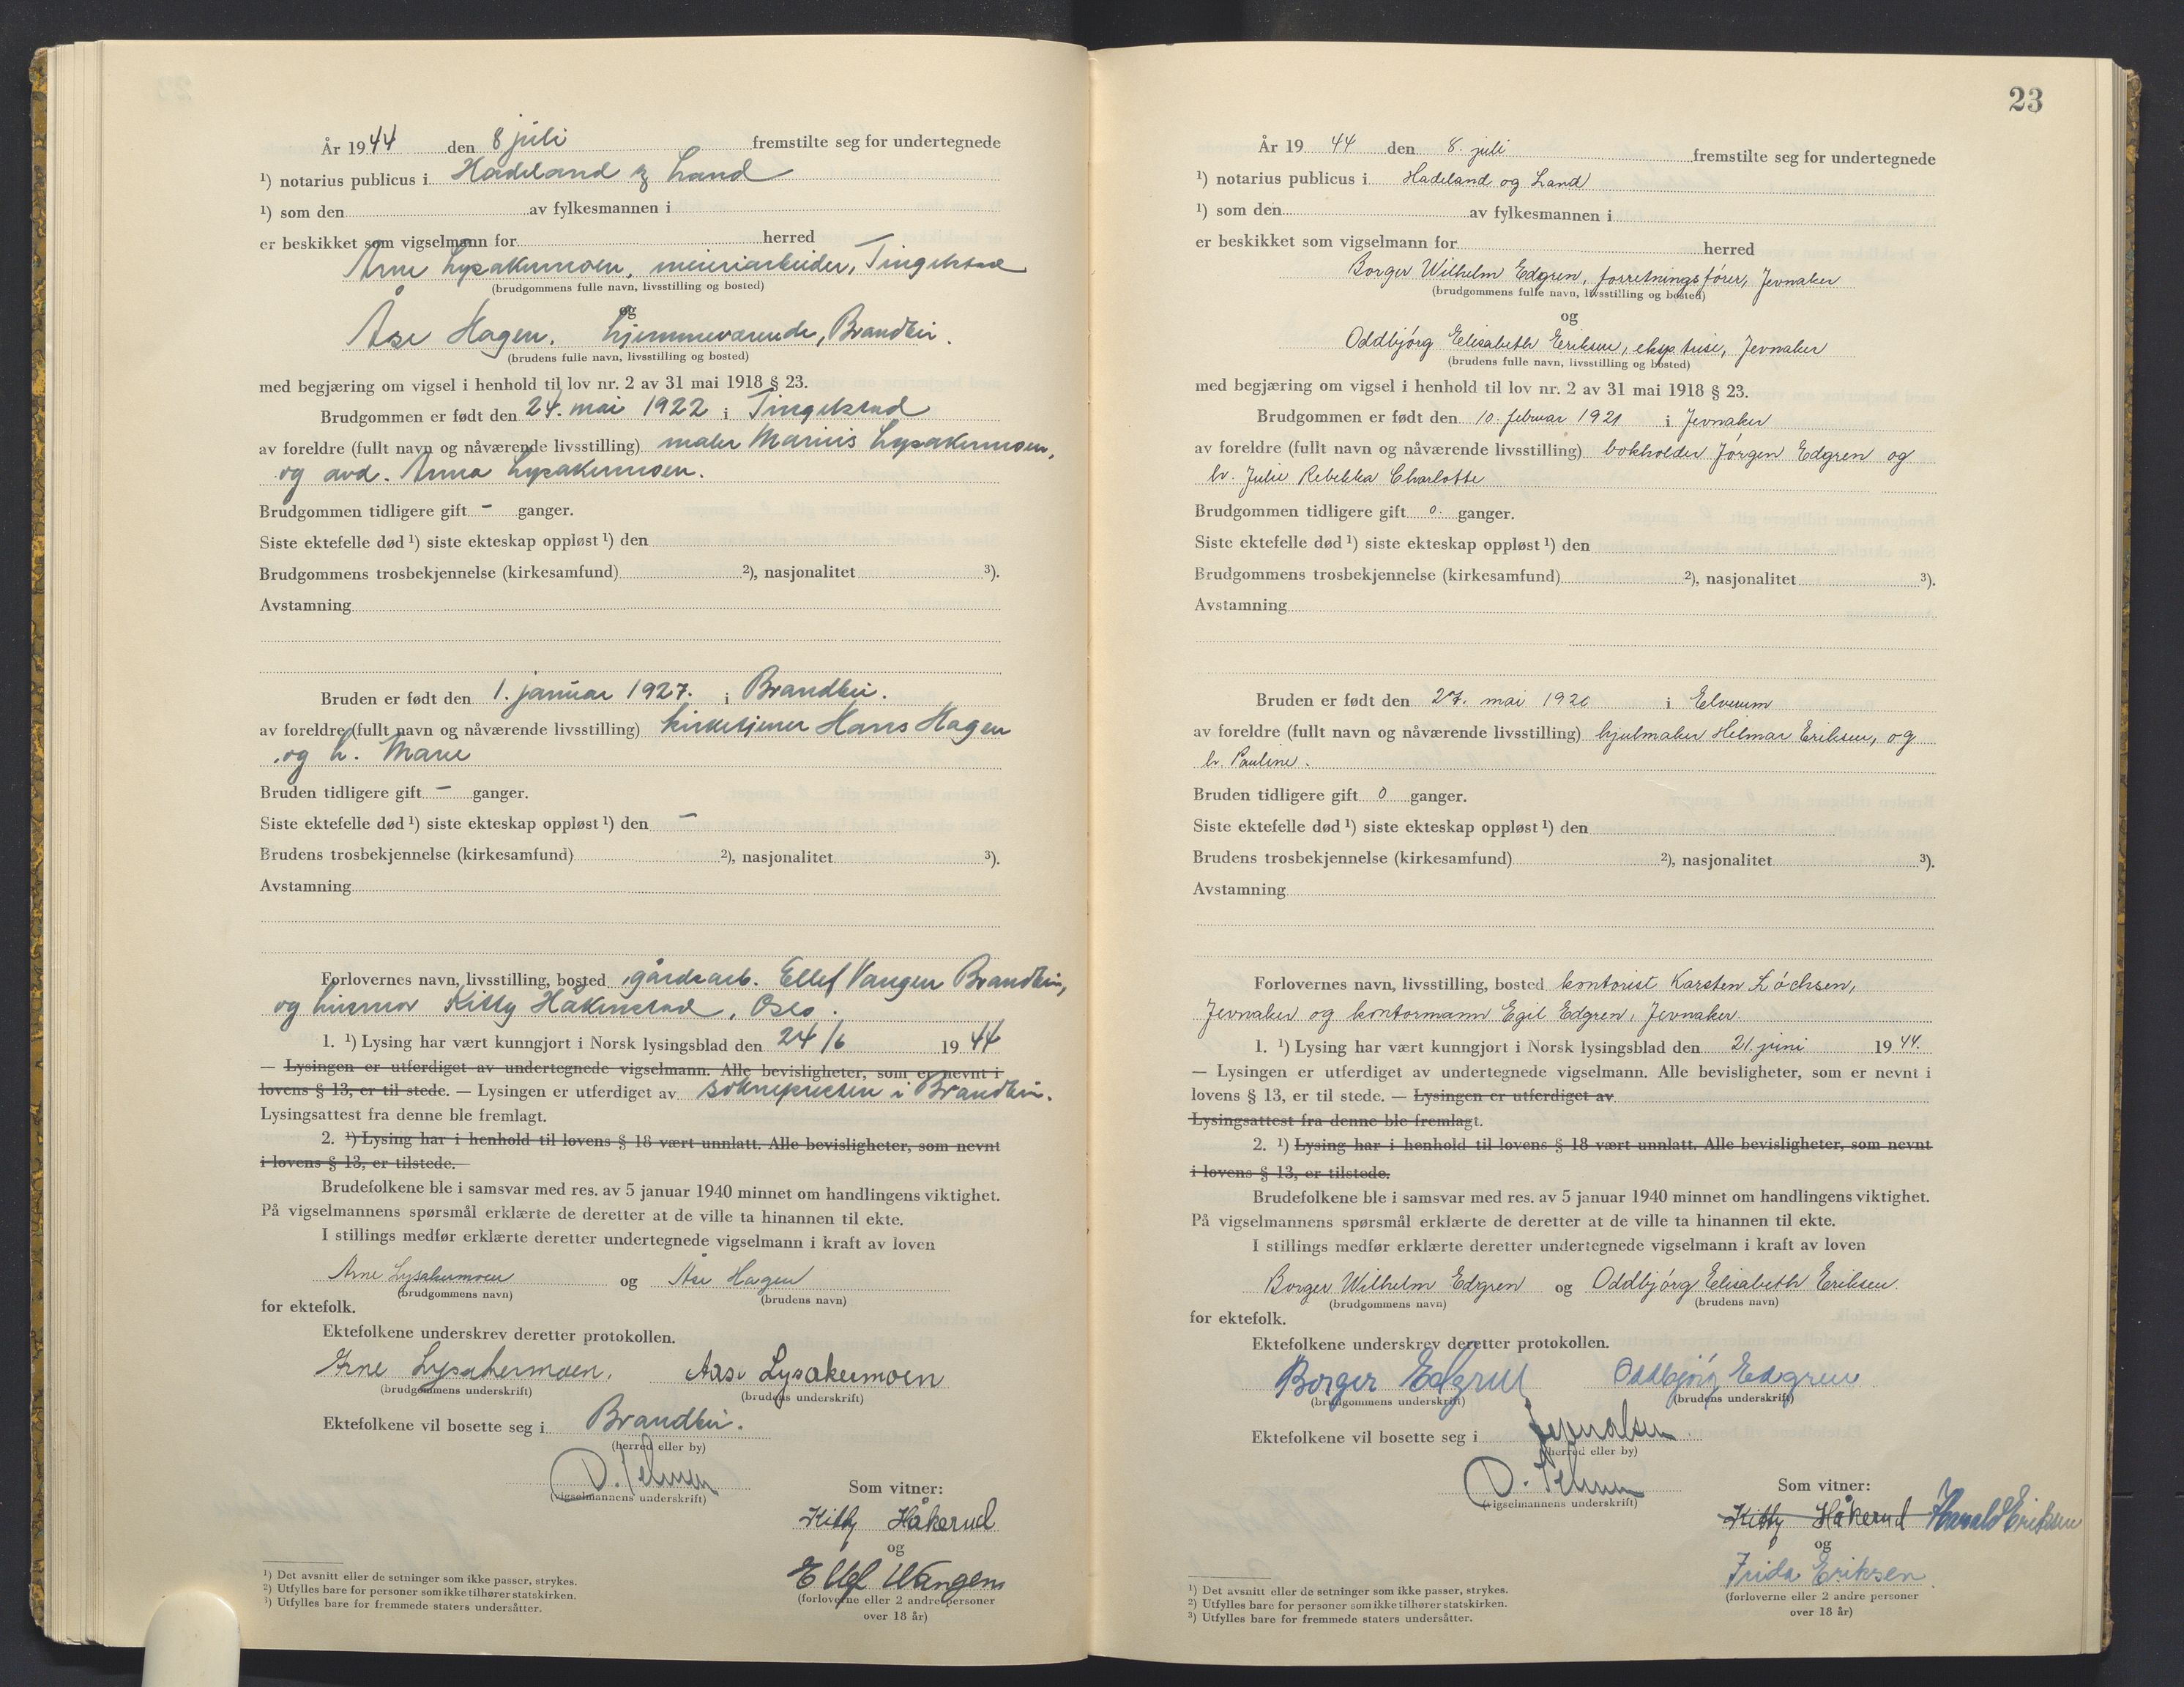 År 1944 den 8 juli fremstilte seg for undertegnede
¹) notarius publicus i Hadeland og Land
¹) som den av fylkesmannen i
er beskikket som vigselmann for herred
Arne Lysakermoen, meieriarbeider, Tingelstad
(brudgommens fulle navn, livsstilling og bosted)
og
Åse Hagen, hjemmeværende, Brandbu.
(brudens fulle navn, livsstilling og bosted)
med begjæring om vigsel i henhold til lov nr. 2 av 31 mai 1918 § 23.
Brudgommen er født den 24. mai 1922 i Tingelstad
av foreldre (fullt navn og nåværende livsstilling) maler Marius Lysakermoen,
og avd. Anna Lysakermoen.
Brudgommen tidligere gift - ganger.
Siste ektefelle død ¹) siste ekteskap oppløst ¹) den
Brudgommens trosbekjennelse (kirkesamfund) ²), nasjonalitet ³).
Avstamning
Bruden er født den 1. januar 1927. i Brandbu.
av foreldre (fullt navn og nåværende livsstilling) kirketjener Hans Hagen
og h. Marie
Bruden tidligere gift - ganger.
Siste ektefelle død ¹) siste ekteskap oppløst ¹) den -
Brudens trosbekjennelse (kirkesamfund) ²), nasjonalitet ³).
Avstamning
Forlovernes navn, livsstilling, bosted gårdsarb. Ellef Vangen Brandbu,
og husmor Kitty Håkenstad, Oslo.
1. ¹) Lysing har vært kunngjort i Norsk lysingsblad den 24/6 1944
— Lysingen er utferdiget av undertegnede vigselmann. Alle bevisligheter, som er nevnt i
lovens § 13, er til stede. — Lysingen er utferdiget av sokneprесten i Brandbu.
Lysingsattest fra denne ble fremlagt.
2. ¹) Lysing har i henhold til lovens § 18 vært unnlatt. Alle bevisligheter, som nevnt
i lovens § 13, er tilstede.
Brudefolkene ble i samsvar med res. av 5 januar 1940 minnet om handlingens viktighet.
På vigselmannens spørsmål erklærte de deretter at de ville ta hinannen til ekte.
I stillings medfør erklærte deretter undertegnede vigselmann i kraft av loven
Arne Lysakermoen og Åse Hagen
(brudgommens navn) (brudens navn)
for ektefolk.
Ektefolkene underskrev deretter protokollen.
Arne Lysakermoen. Aase Lysakermoen
(brudgommens underskrift) (brudens underskrift)
Ektefolkene vil bosette seg i Brandbu.
(herred eller by)
(vigselmannens underskrift)
Som vitner:
Kitty Håkerud
og
Ellef Wangen
(forloverne eller 2 andre personer
over 18 år)
¹) Det avsnitt eller de setninger som ikke passer, strykes.
²) Utfylles bare for personer som ikke tilhører statskirken.
³) Utfylles bare for fremmede staters undersåtter.
23
År 19 44 den 8. juli fremstilte seg for undertegnede
¹) notarius publicus i Hadeland og Land
¹) som den av fylkesmannen i
er beskikket som vigselmann for herred
Borger Wilhelm Edgren, forretningsfører, Jevnaker
(brudgommens fulle navn, livsstilling og bosted)
og
Oddbjørg Elisabeth Eriksen, eksp.trise, Jevnaker
(brudens fulle navn, livsstilling og bosted)
med begjæring om vigsel i henhold til lov nr. 2 av 31 mai 1918 § 23.
Brudgommen er født den 10. februar 1921 i Jevnaker
av foreldre (fullt navn og nåværende livsstilling) bokholder Jørgen Edgren og
h. Julie Rebekka Charlotte
Brudgommen tidligere gift 0. ganger.
Siste ektefelle død ¹) siste ekteskap oppløst ¹) den
Brudgommens trosbekjennelse (kirkesamfund) ²), nasjonalitet ³).
Avstamning
Bruden er født den 27. mai 1920 i Elverum
av foreldre (fullt navn og nåværende livsstilling) hjulmaker Hilmar Eriksen, og
h. Pauline.
Bruden tidligere gift 0 ganger.
Siste ektefelle død ¹) siste ekteskap oppløst ¹) den
Brudens trosbekjennelse (kirkesamfund) ²), nasjonalitet ³).
Avstamning
Forlovernes navn, livsstilling, bosted kontorist Karsten Løchsen,
Jevnaker og kontormann Egil Edgren, Jevnaker.
1. ¹) Lysing har vært kunngjort i Norsk lysingsblad den 21. juni 1944.
— Lysingen er utferdiget av undertegnede vigselmann. Alle bevisligheter, som er nevnt i
lovens § 13, er til stede. — Lysingen er utferdiget av
Lysingsattest fra denne ble fremlagt.
2. ¹) Lysing har i henhold til lovens § 18 vært unnlatt. Alle bevisligheter, som nevnt
i lovens § 13, er tilstede.
Brudefolkene ble i samsvar med res. av 5 januar 1940 minnet om handlingens viktighet.
På vigselmannens spørsmål erklærte de deretter at de ville ta hinannen til ekte.
I stillings medfør erklærte deretter undertegnede vigselmann i kraft av loven
Borger Wilhelm Edgren og Oddbjørg Elisabeth Eriksen.
(brudgommens navn) (brudens navn)
for ektefolk.
Ektefolkene underskrev deretter protokollen.
Borger Edgren Oddbjørg Edgren
(brudgommens underskrift) (brudens underskrift)
Ektefolkene vil bosette seg i Jevnaker
(herred eller by)
(vigselmannens underskrift)
Som vitner:
Kitty Håkerud Harald Eriksen
og
Frida Eriksen
(forloverne eller 2 andre personer
over 18 år)
¹) Det avsnitt eller de setninger som ikke passer, strykes.
²) Utfylles bare for personer som ikke tilhører statskirken.
³) Utfylles bare for fremmede staters undersåtter.